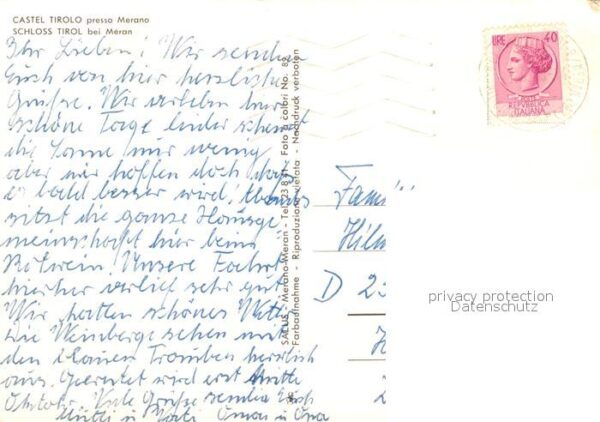 CASTEL TIROLO presso Merano
SCHLOSS TIROL bei Meran
Ihr Lieben! Wir senden
Euch von hier herzliche
Grüße. Wir verleben hier
schöne Tage leider scheint
die Sonne nur wenig
aber wir hoffen doch daß
es bald besser wird! Abends
sitzt die ganze Hausge
meinschaft hier beim
Rotwein. Unsere Fahrt
hierher verlief sehr gut
Wir hatten schönes Wetter
Die Weinberge sehen mit
den blauen Trauben herrlich
aus. Geerntet wird erst Mitte
Oktober. Viele Grüße senden Euch
Mutti u Vati Oma u Opa
SALUS - Merano-Meran - Tel. 23 8 Foto a colori No. 8
Farbaufnahme - Riproduzione vietata - Nachdruck verboten
LIRE 40
REPVBBLICA
ITALIANA
Fami
D 2
privacy protection
Datenschutz